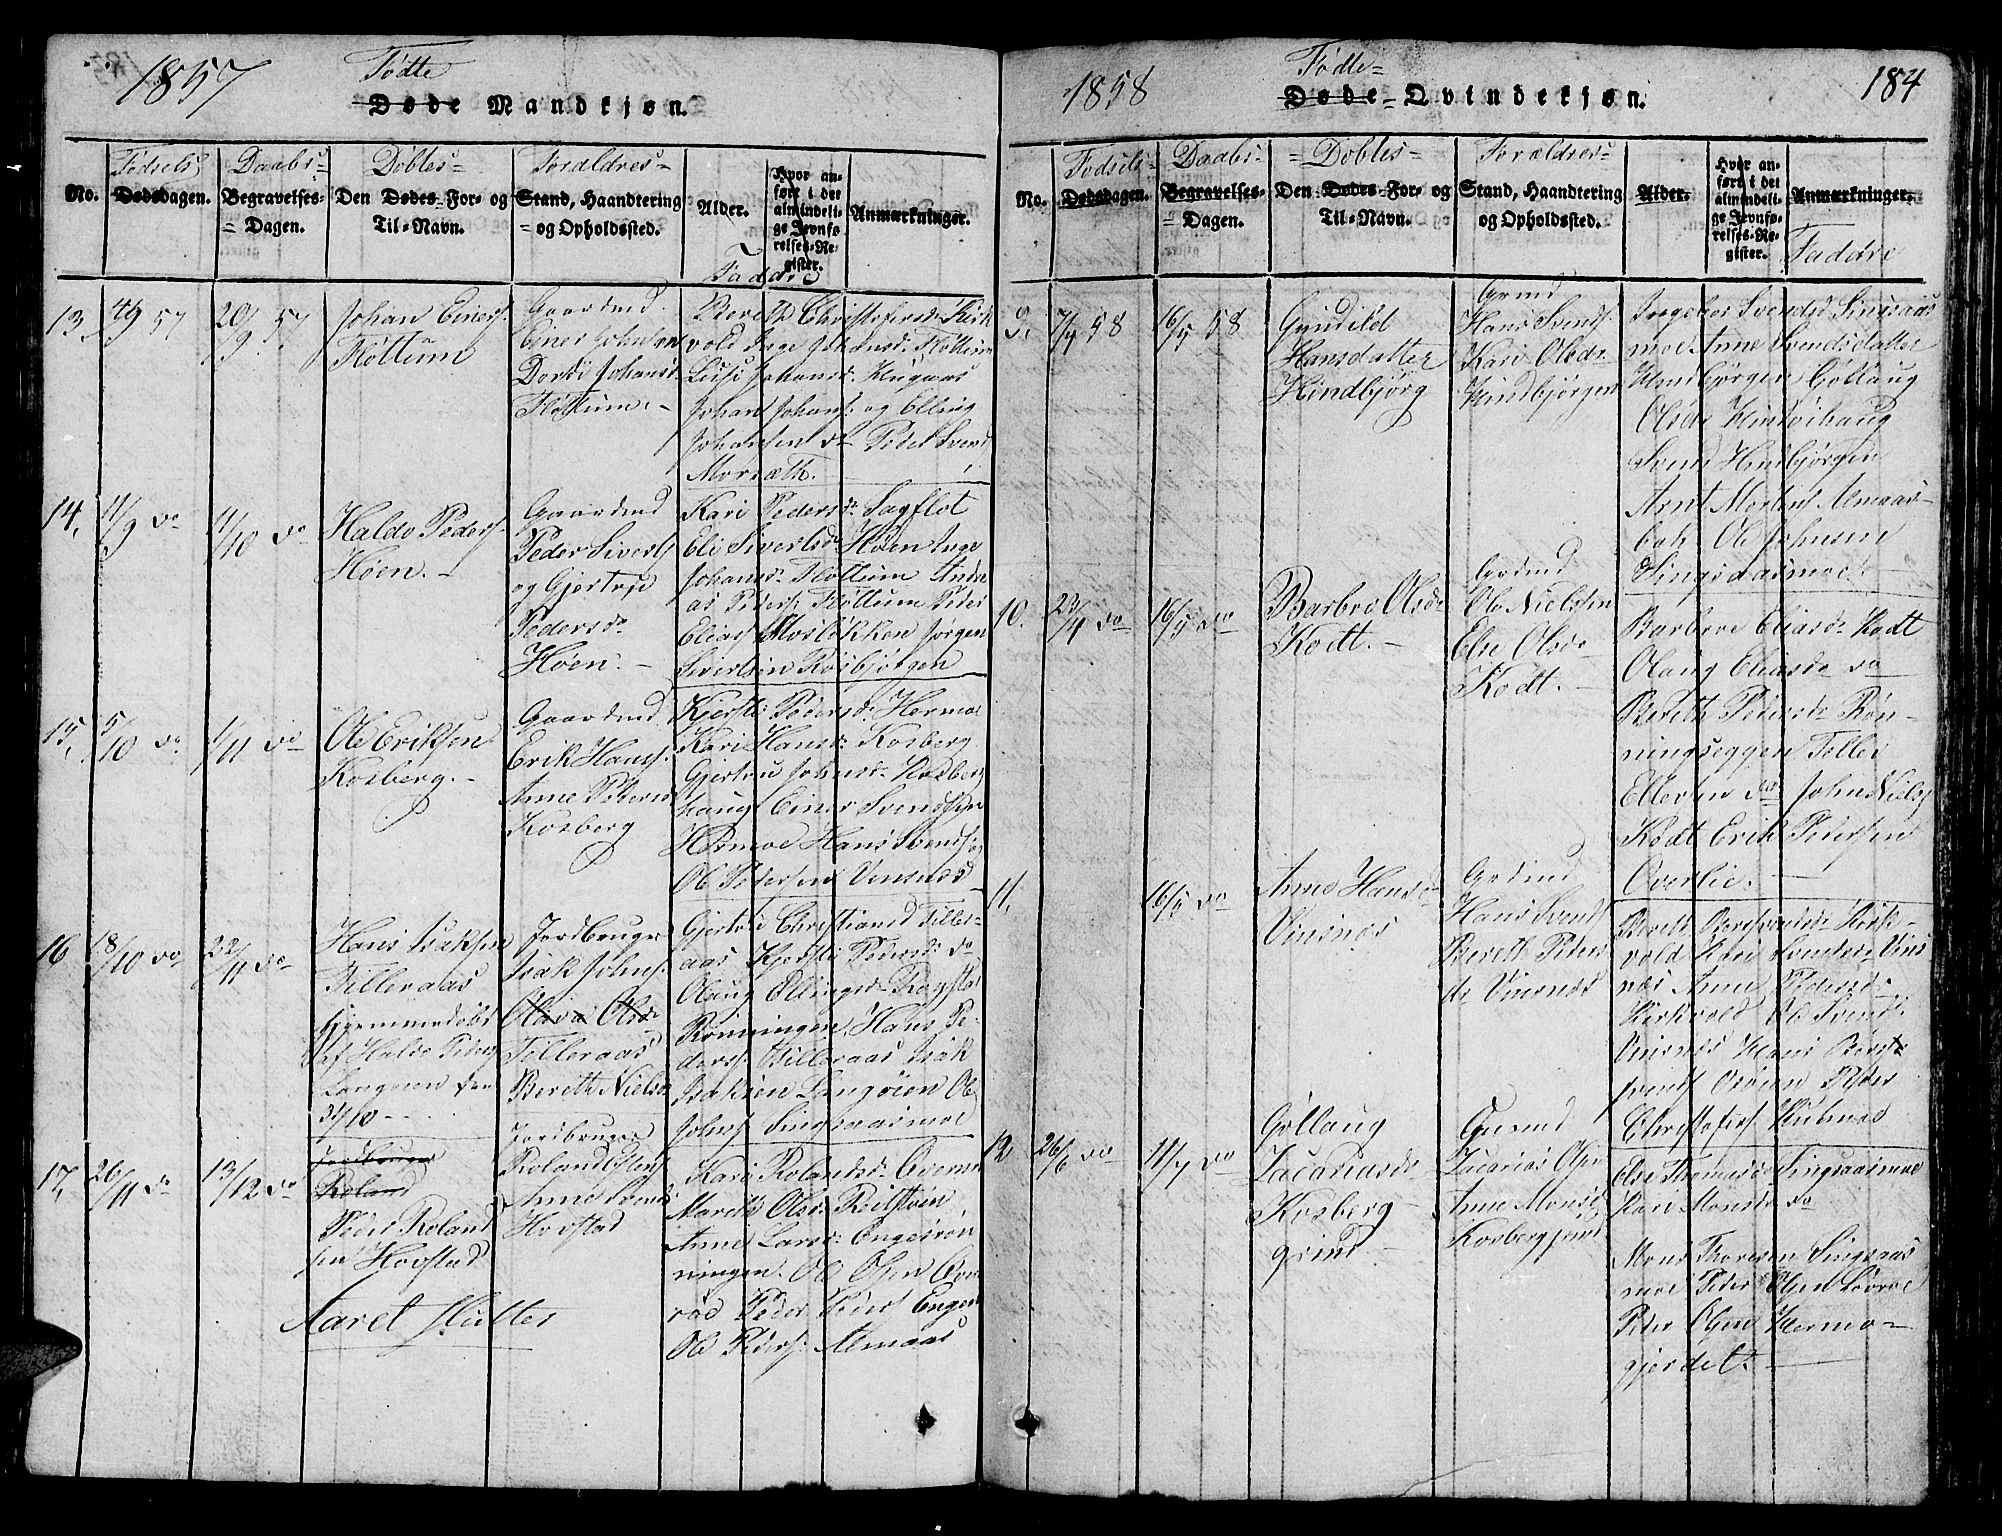 1857
Fødte
Døde Mandkjøn.
No.
Fødsels
Dødsdagen.
Daabs-
Begravelses-
Dagen.
Døbtes-
Den Dødes For- og
Til-Navn.
Forældres-
Stand, Haandtering
og Opholdssted.
Alder.
Hvor an-
ført i det
almindeli-
ge Jevnfø-
relses-Re-
gister.
Anmærkninger.
Faddre
13. 4/9 57 20/9 57
Johan Einers.
Fløttum
Gaardmd
Einer Johnsen
Dordi Johansd
Fløttum. -
Bereth Christofersd: Kirk
vold Inge Johansd: Fløttum
Lusi Johansd: Krigaas
Johan Johans: og Elling
Johansen do Peder Svend
Morsæth.
14. 11/9 do 11/10 do
Haldo Peders.
Høen. -
Gaardmd
Peder Siverts
og Gjertrue
Pedersd
Høen. -
Kari Pedersd. Sagflot
Eli Sivertsd: Høen Inge
Johansd: Fløttum Andre
as Peders: Fløttum Peder
Elias Mosløkken Jørgen
Sivertsen Røsbjørgen
15. 5/10 do 1/11 do
Ole Eriksen
Kosberg. -
Gaardmd
Erik Hans.
Anne Pedersd
Kosberg
Kjersti Pedersd: Hermoe
Kari Hansd. Kosberg
Gjertru Johnsd: Kosberg
haug Einer Svendsen
Hermoe Hans Svends: og
Ole Pedersen Vinsnes
16 18/10 do 22/11 do
Hans Isaksen
Tilleraas
hjemmedøbt
af Haldo Peders
Langeen den
31/10 -
Jordbruger
Isak Johns.
Olava Olsd
Telleraas
Bereth Nielsd
Gjertru Christiansd Tiller-
aas Kjersti Pedersd do
Olaug Ellingsd: Rogstad
Rønningen Hans Pe-
ders. Tilleraas Isak
Isaksen Langøien Ole
Johns Singsaasmoe
17. 26/11 do 13/12 do
Jordbruger
Roland
Peder Roland
sen Hovstad
Jordbruger
Roland Estens
Anne Svends
Hovstad
Kari Rolandsd. Overen
Mareth Olsd: Reitstøen
Anne Larsd. Engesrøn
ningen. Ole Olsen Over
rød Peder Peders Engen
Ole Peders. Almaas
Aaret Slutter
1858
Fødte-
Døde-Qvindekjøn.
184
No.
Fødsels-
Dødsdagen.
Daabs-
Begravelses-
Dagen.
Døbtes-
Den Dødes For- og
Til-Navn.
Forældres-
Stand, Haandtering
og Opholdssted.
Alder.
Hvor an-
ført i det
almindeli-
ge Jevnfø-
relses-Re-
gister.
Anmærkninger.
Faddre
9. 7/4 58 16/5 58
Gundild
Hansdatter
Hindbjørg
Grmd
Hans Svends.
Kari Olsdr
Hindbjørgen
Ingebor Svendsd Singsaas
moe Anne Svendsdatter
Hindbjørgen Gollaug
Olsdr
Svend Hindbjørgen
Arnt Mortens Almaas-
bak Ole Johnsen
Singsaasmoe. -
10. 23/4 do 16/5 do
Barbro Olsdr
Kodt. -
Grdmd
Ole Nielsen
Else Olsdr
Kodt. -
Barbro Eliasd. Kodt
Olaug Eliasdr do
Bereth Pedersdr Røn-
ningseggen Teller
Ellevsen do John Niels
Kodt Erik Pedersen
Overlie. -
11. 16/5 do
Anne Hansdr
Vinsnes
Grdmd
Hans Svends
Bereth Peders
dr Vinsnes
Bereth Bersvendsdr Kirk-
vold Kari Svendsdr Vins
nes Anne Pedersdr
Kirkvold Ole Svends.
Vinsnes Hans Berst
svends Peder
Christofers
12 26/6 do 11/7 do
Gollaug
Zacariasdr
Kosberg
grind -
Grmd
Zacarias Olsen
Anne Monsd
Kosberggrind
Else Thomasdr Singsaasmoe
Kari Monsdr do
Mons Thoresen Singsaas
moe Peder Olsen
Peder Olsen Hermo-
gjerdet. -